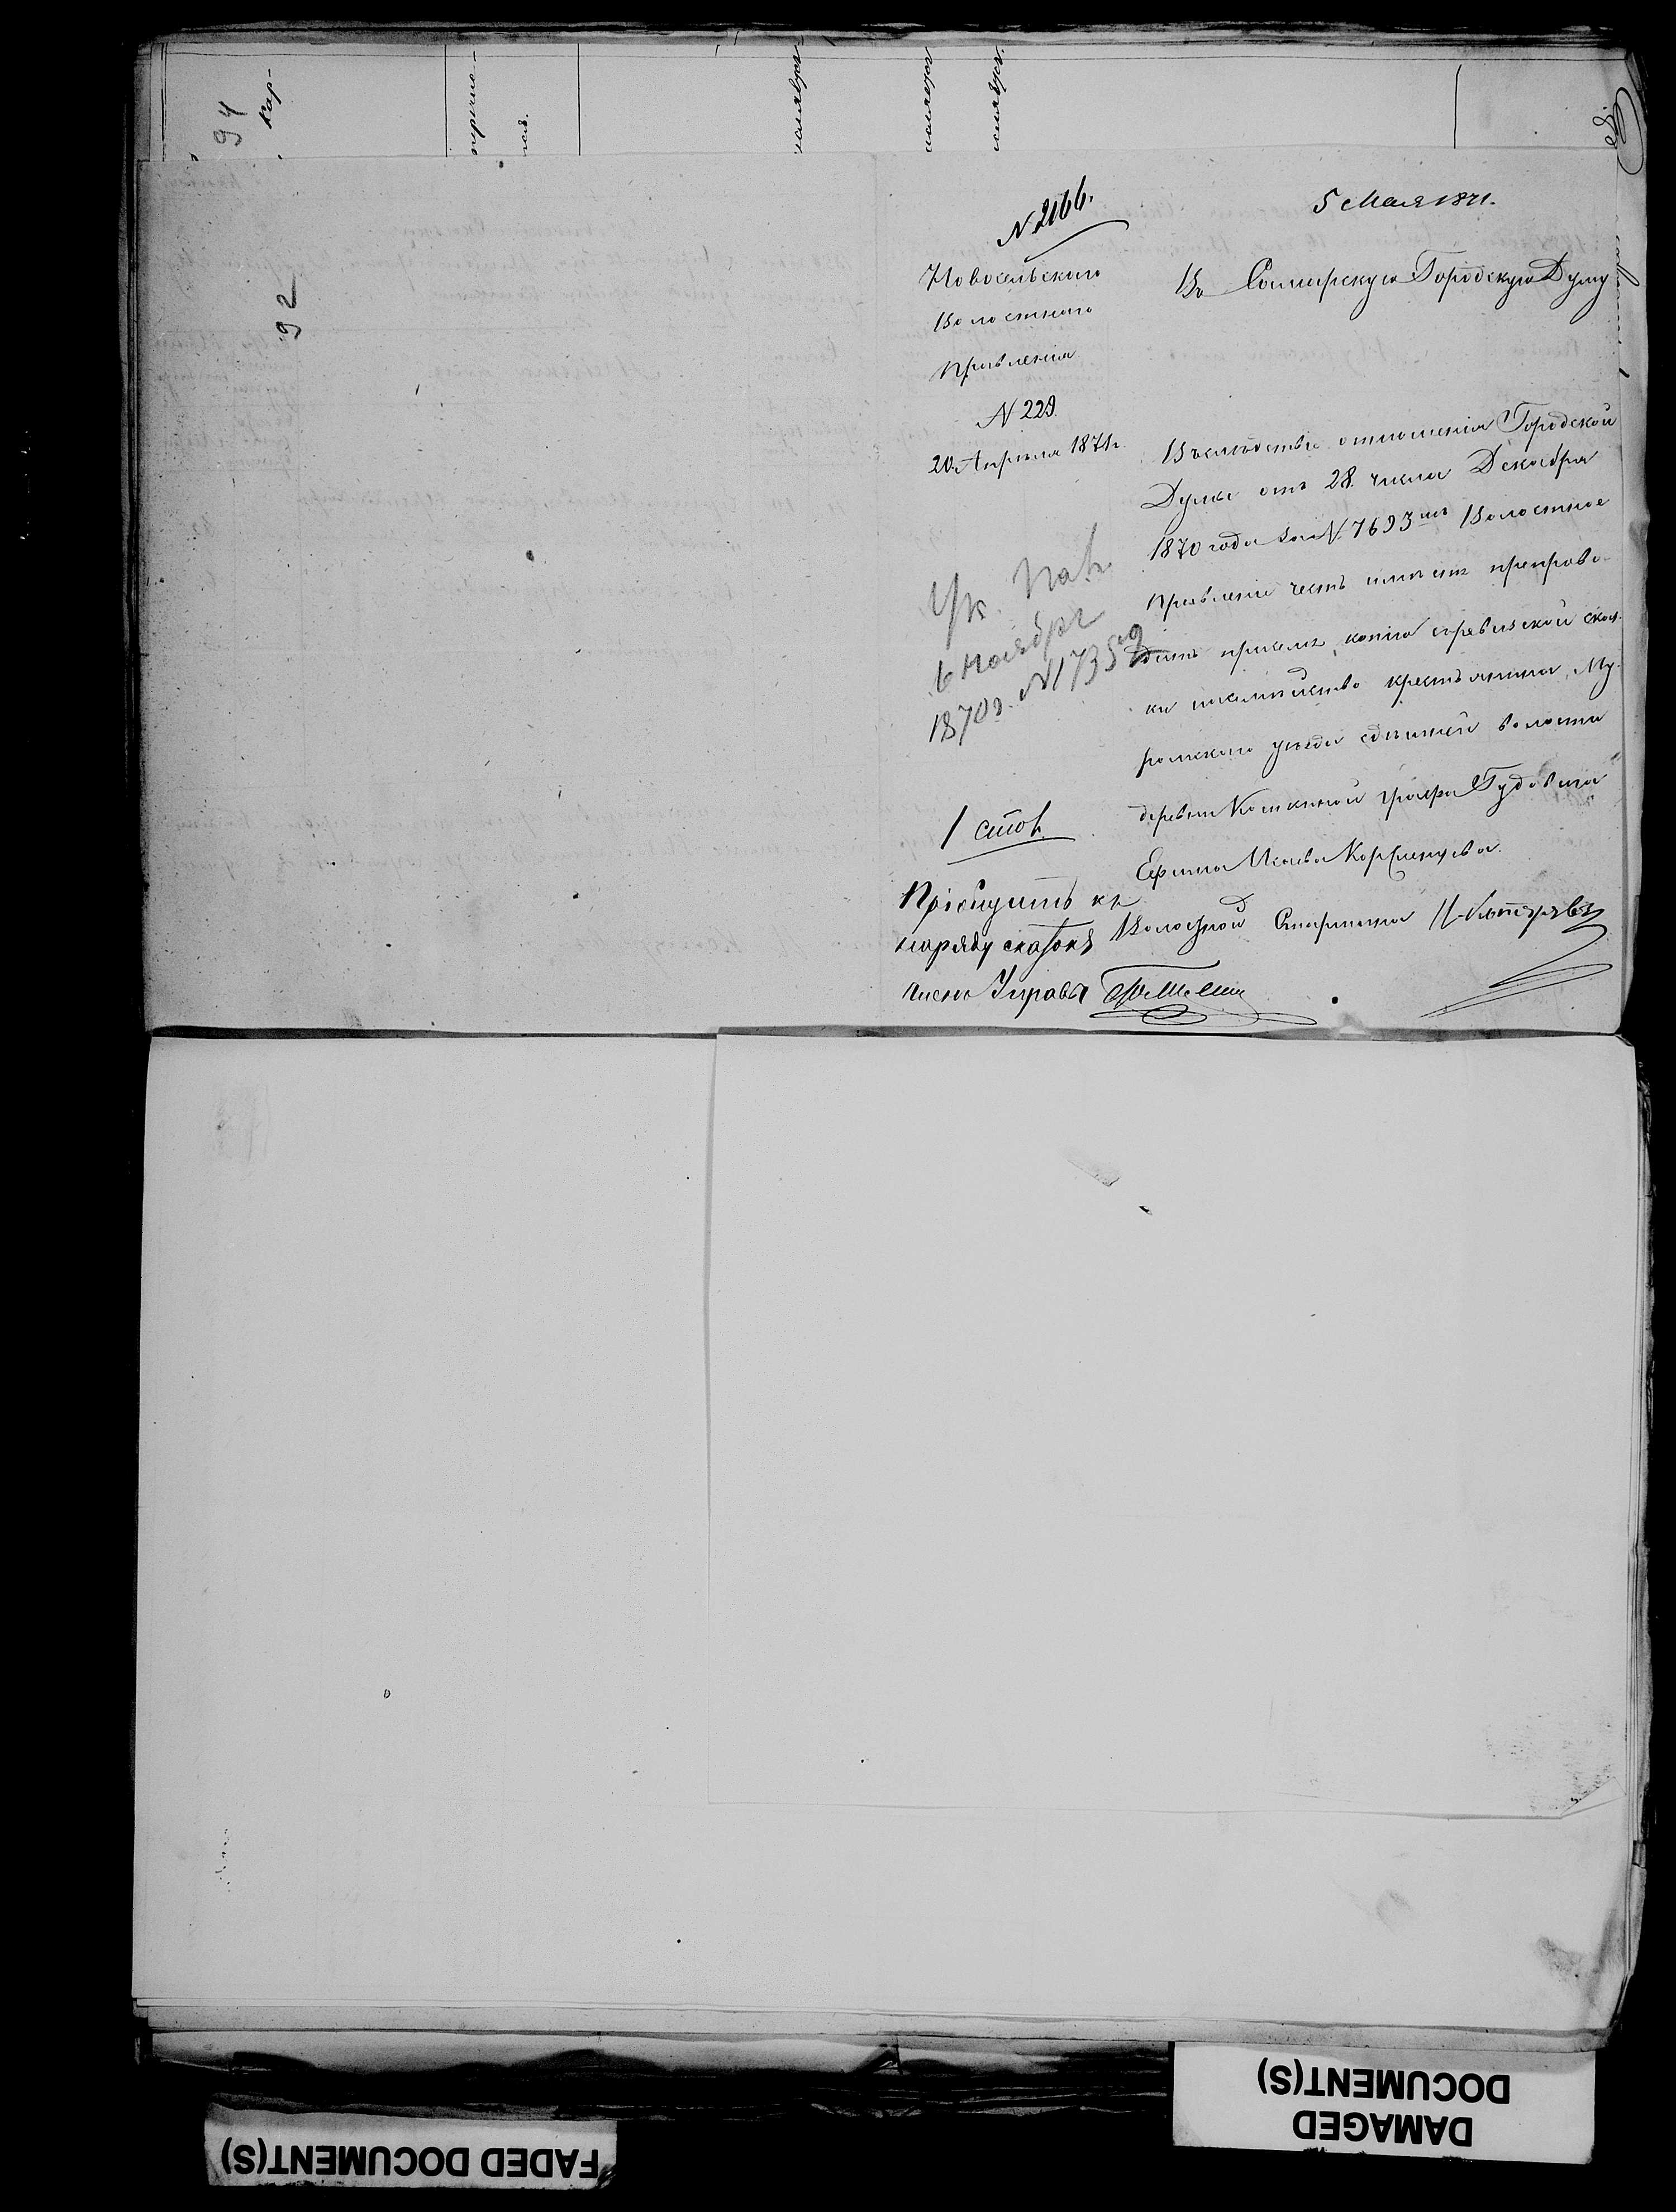 94
92
№ 2166.
5 Мая 1871.
Новосельскаго
Волостнаго
Правленія
№ 229.
20 Апреля 1871 г.
Въ Самарскую Городскую Думу
Въследствіе отношенія Городской
Думы отъ 28. числа Декабря
1870 года за № 7693мъ Волостное
Правленіе честь имѣетъ препрово-
дить при семъ копію съ ревизской сказ-
ки на семѣйство крестьянина, Му-
ромскаго уезда здѣшней волости
деревни Кошкиной графа Гудовича
Ефима Исаева
Волостной Старшина
Ук. Пал.
6 ноября
1870 г. № 17359
1 стол.
Пріобщить къ
наряду сказокъ
Членъ Управы
FADED DOCUMENT(S)
DAMAGED
DOCUMENT(S)